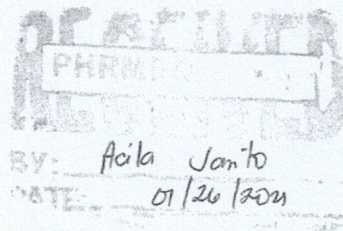 RECEIVED
PHRMO
BY: Acila Janito
DATE: 01/26/2021